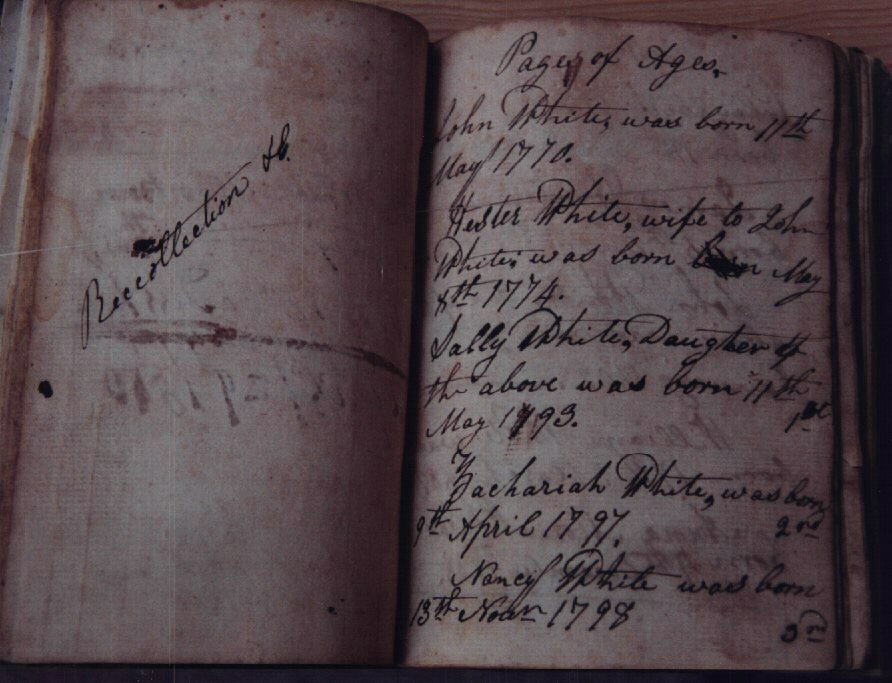 Reccollection &c.
Page of Ages,
John White, was born 11th
May 1770.
Hester White, wife to John
White, was born May
8th 1774.
Sally White, Daugher of
the above was born 11th
May 1793. 1st
Zachariah White, was born
9th April 1797. 2nd
Nancy White was born
13th Novr 1798
3rd